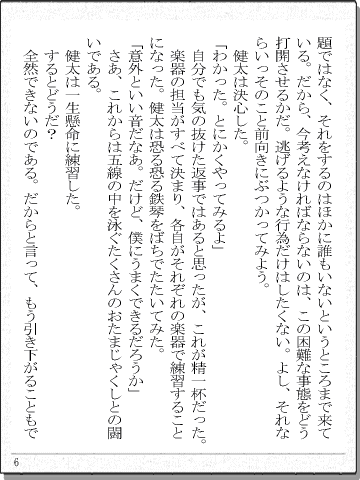 題ではなく、それをするのはほかに誰もいないというところまで来て
いる。だから、今考えなければならないのは、この困難な事態をどう
打開させるかだ。逃げるような行為だけはしたくない。よし、それな
らいっそのこと前向きにぶつかってみよう。
健太は決心した。
「わかった。とにかくやってみるよ」
自分でも気の抜けた返事ではあると思ったが、これが精一杯だった。
楽器の担当がすべて決まり、各自がそれぞれの楽器で練習すること
になった。健太は恐る恐る鉄琴をばちでたたいてみた。
「意外といい音だなあ。だけど、僕にうまくできるだろうか」
さあ、これからは五線の中を泳ぐたくさんのおたまじゃくしとの闘
いである。
健太は一生懸命に練習した。
するとどうだ?
全然できないのである。だからと言って、もう引き下がることもで
6